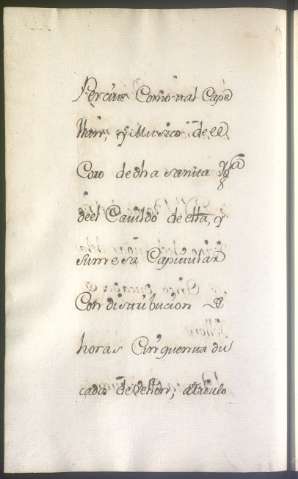 Percive Como tal Cape
llan, y Musico de el
Coro de dha santa Ygª
de el Cavildo de esta, y
su mesa Capitular
Con distribucion de
horas Cinquenta du
cados de vellon, a titulo